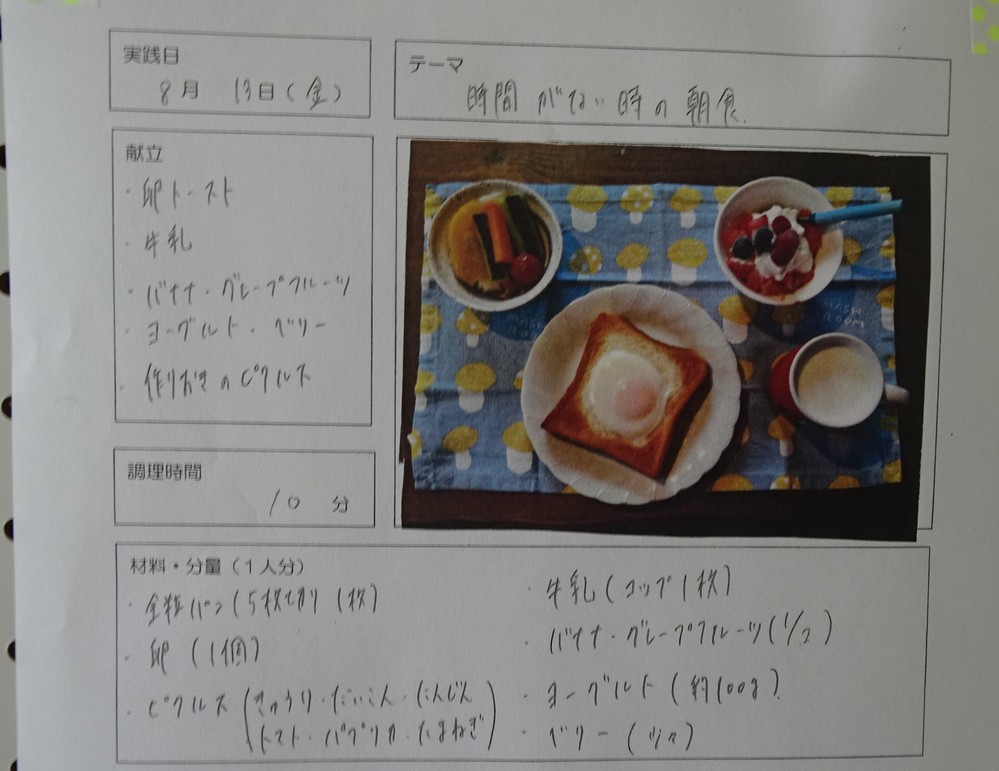 実践日
8月 13日(金)
テーマ
時間がない時の朝食.
献立
・卵トースト
・牛乳
・バナナ・グレープフルーツ
・ヨーグルト・ベリー
・作りおきのピクルス
調理時間
10 分
材料・分量(1人分)
・全粒パン(5枚切り1枚)
・卵(1個)
・ピクルス(きゅうり・だいこん・にんじん
トマト・パプリカ・たまねぎ)
・牛乳(コップ1枚)
・バナナ・グレープフルーツ(1/2)
・ヨーグルト(約100g).
・ベリー(少々)